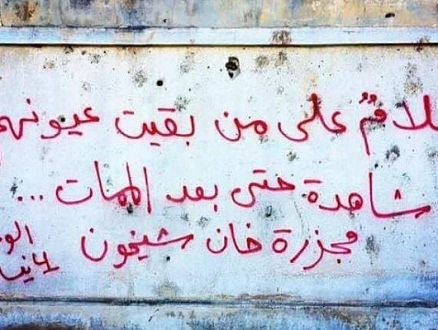 سلامٌ على من بقيت عيونهم
شاهدة حتى بعد الممات ...
مجزرة خان شيخون